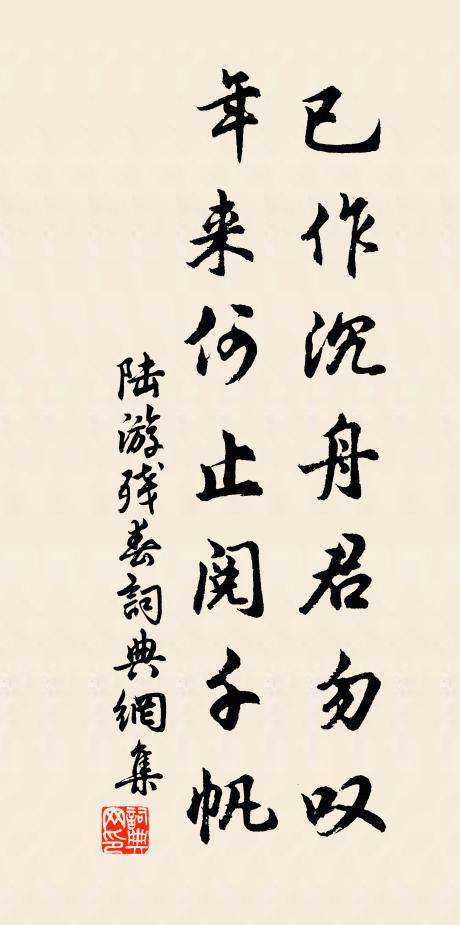 已作沉舟君勿叹
年来何止阅千帆
陆游残春詞典網集
詞典網印